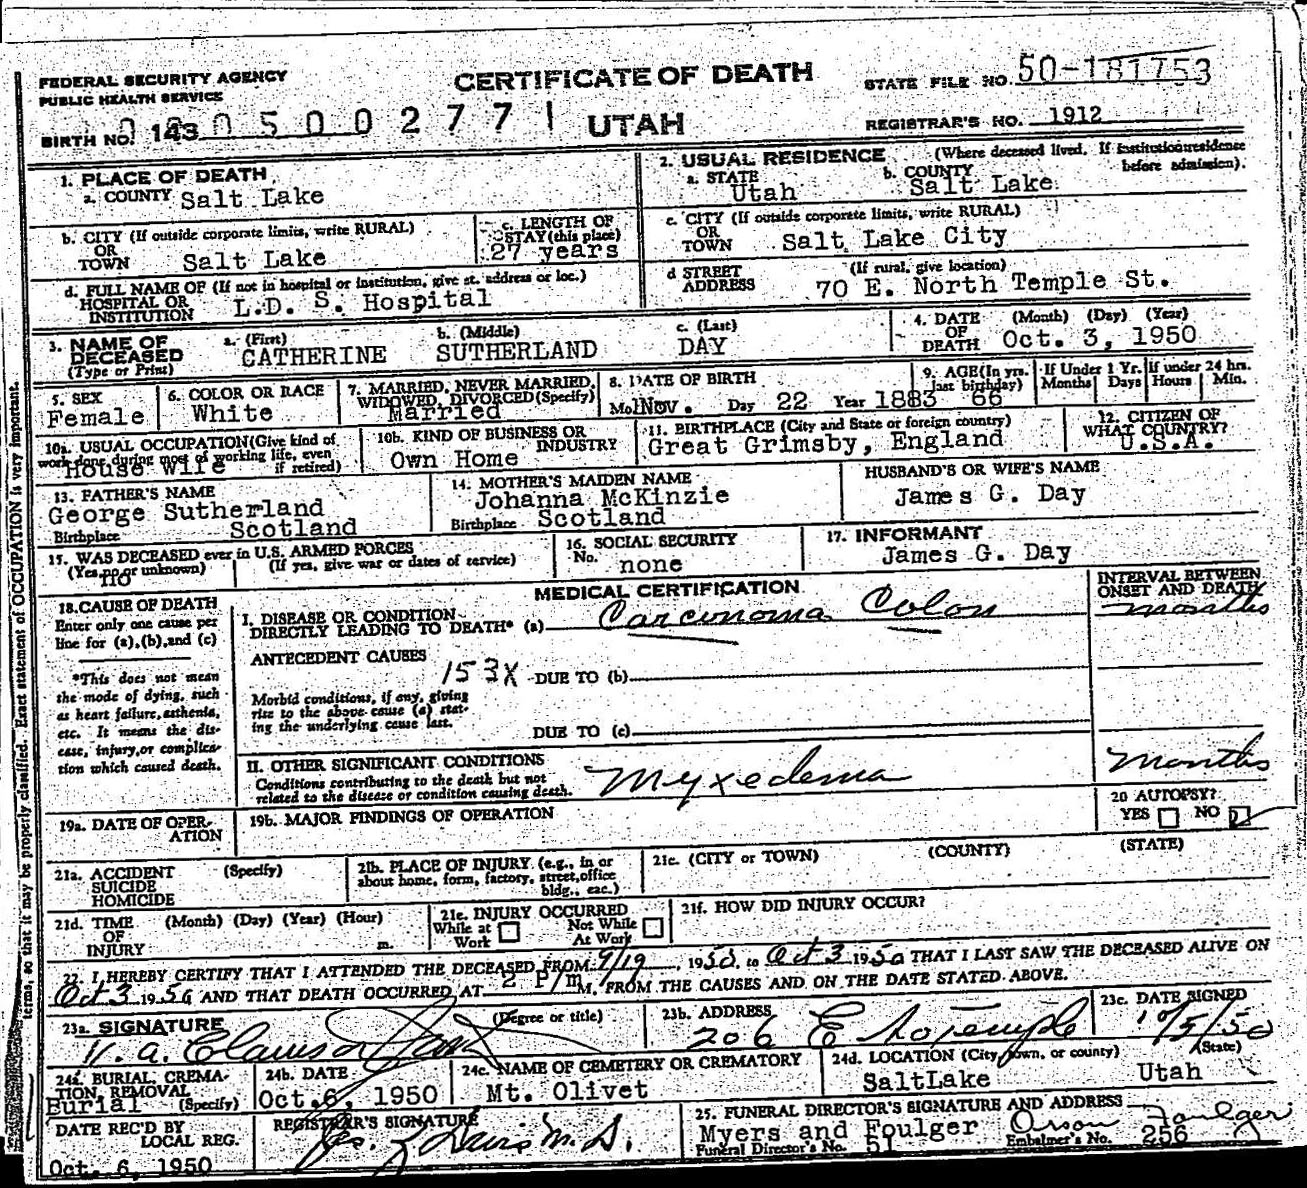 FEDERAL SECURITY AGENCY
PUBLIC HEALTH SERVICE
CERTIFICATE OF DEATH
STATE FILE NO. 50-181753
BIRTH NO. 143 0500277
UTAH
REGISTRAR'S NO. 1912
1. PLACE OF DEATH
a. COUNTY Salt Lake
2. USUAL RESIDENCE (Where deceased lived. If institution: residence before admission).
a. STATE Utah b. COUNTY Salt Lake
b. CITY (If outside corporate limits, write RURAL) OR TOWN Salt Lake
c. LENGTH OF STAY (this place) 27 years
c. CITY (If outside corporate limits, write RURAL) OR TOWN Salt Lake City
d. FULL NAME OF (If not in hospital or institution, give st. address or loc.) HOSPITAL OR INSTITUTION L.D. S. Hospital
d STREET ADDRESS (If rural, give location) 70 E. North Temple St.
3. NAME OF DECEASED (Type or Print)
a. (First) CATHERINE b. (Middle) SUTHERLAND c. (Last) DAY
4. DATE OF DEATH (Month) (Day) (Year) Oct. 3, 1950
5. SEX Female
6. COLOR OR RACE White
7. MARRIED, NEVER MARRIED, WIDOWED, DIVORCED (Specify) Married
8. DATE OF BIRTH Mo. Nov. Day 22 Year 1883
9. AGE (In yrs. last birthday) 66
If Under 1 Yr. Months Days
If under 24 hrs. Hours Min.
10a. USUAL OCCUPATION (Give kind of work done during most of working life, even if retired) House wife
10b. KIND OF BUSINESS OR INDUSTRY Own Home
11. BIRTHPLACE (City and State or foreign country) Great Grimsby, England
12. CITIZEN OF WHAT COUNTRY? U.S.A.
13. FATHER'S NAME George Sutherland
Birthplace Scotland
14. MOTHER'S MAIDEN NAME Johanna McKinzie
Birthplace Scotland
HUSBAND'S OR WIFE'S NAME James G. Day
15. WAS DECEASED ever in U.S. ARMED FORCES
(Yes, no or unknown) no (If yes, give war or dates of service)
16. SOCIAL SECURITY No. none
17. INFORMANT James G. Day
MEDICAL CERTIFICATION
INTERVAL BETWEEN ONSET AND DEATH
18. CAUSE OF DEATH
Enter only one cause per line for (a), (b), and (c)
I. DISEASE OR CONDITION DIRECTLY LEADING TO DEATH* (a) Carcinoma Colon months
ANTECEDENT CAUSES
153X DUE TO (b)
*This does not mean the mode of dying, such as heart failure, asthenia, etc. It means the disease, injury, or complication which caused death.
Morbid conditions, if any, giving rise to the above cause (a) stating the underlying cause last.
DUE TO (c)
II. OTHER SIGNIFICANT CONDITIONS
Conditions contributing to the death but not related to the disease or condition causing death.
Myxedema months
19a. DATE OF OPERATION
19b. MAJOR FINDINGS OF OPERATION
20 AUTOPSY? YES NO
21a. ACCIDENT SUICIDE HOMICIDE (Specify)
21b. PLACE OF INJURY (e.g., in or about home, form, factory, street, office bldg., etc.)
21c. (CITY or TOWN) (COUNTY) (STATE)
21d. TIME OF INJURY (Month) (Day) (Year) (Hour) m.
21e. INJURY OCCURRED While at Work Not While At Work
21f. HOW DID INJURY OCCUR?
22. I HEREBY CERTIFY THAT I ATTENDED THE DECEASED FROM 9/19, 1950, to Oct 3 1950 THAT I LAST SAW THE DECEASED ALIVE ON
Oct 3 1950 AND THAT DEATH OCCURRED AT 2 P/m M, FROM THE CAUSES AND ON THE DATE STATED ABOVE.
23a. SIGNATURE (Degree or title)
Clawson
23b. ADDRESS 206 E So Temple
23c. DATE SIGNED 10/5/50
24a. BURIAL, CREMATION, REMOVAL (Specify) Burial
24b. DATE Oct. 6, 1950
24c. NAME OF CEMETERY OR CREMATORY Mt. Olivet
24d. LOCATION (City, town, or county) (State)
SaltLake Utah
DATE REC'D BY LOCAL REG. Oct. 6, 1950
REGISTRAR'S SIGNATURE
25. FUNERAL DIRECTOR'S SIGNATURE AND ADDRESS
Myers and Foulger Orson Foulger
Funeral Director's No. 51 Embalmer's No. 256
terms, so that it may be properly classified. Exact statement of OCCUPATION is very important.